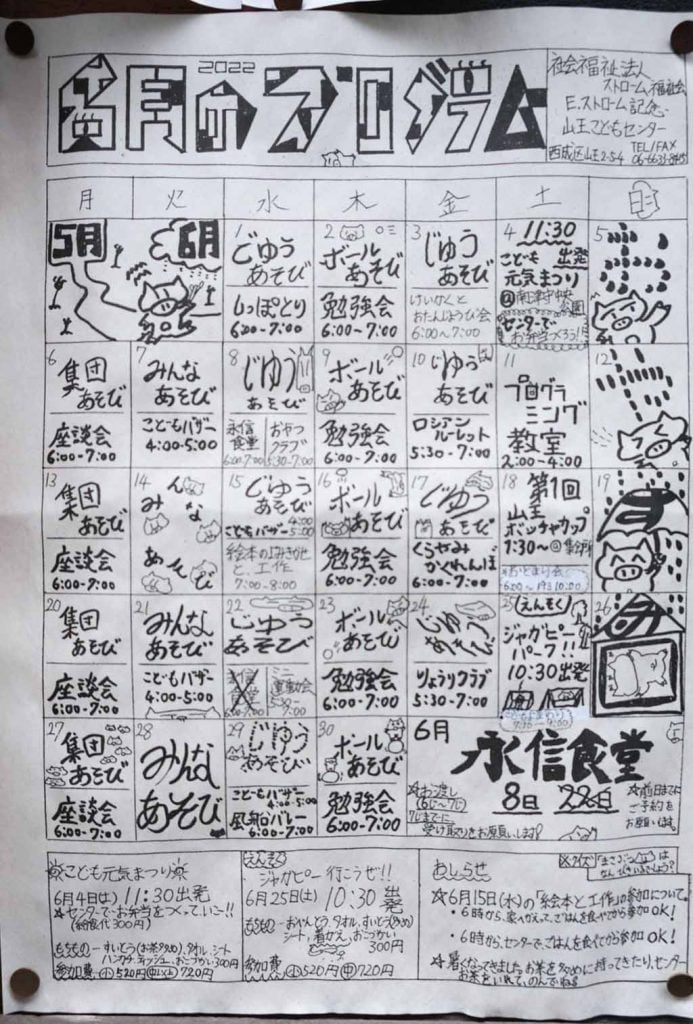 6月のプログラム
2022
社会福祉法人
ストローム福祉会
E.ストローム記念
山王こどもセンター
西成区山王2-5-4 TEL/FAX
月 火 水 木 金 土 日
5月 6月
1
じゆう
あそび
しっぽとり
6:00-7:00
2
ボール
あそび
勉強会
6:00~7:00
3
じゆう
あそび
けいかくと
おたんじょうび会
6:00~7:00
4 11:30
こども 出発
元気まつり
センターで
お弁当づくろう!!
5
6
集団
あそび
座談会
6:00-7:00
7
みんな
あそび
こどもバザー
4:00-5:00
8
じゆう
あそび
永信
食堂
6:00-7:00
おやつ
クラブ
5:30-7:00
9
ボール
あそび
勉強会
6:00~7:00
10
じゆう
あそび
ロシアン
ルーレット
5:30-7:00
11
プログラ
ミング
教室
2:00-4:00
12
13
集団
あそび
座談会
6:00-7:00
14
みんな
あそび
15
じゆう
あそび
こどもバザー 4:00
5:00
絵本のよみきかせ
と、工作
7:00-8:00
16
ボール
あそび
勉強会
6:00-7:00
17
じゆう
あそび
くらやみ
かくれんぼ
6:00-7:00
18 第1回
山王
ボッチャカップ
1:30~
おとまり会
19
20
集団
あそび
座談会
6:00-7:00
21
みんな
あそび
こどもバザー
4:00-5:00
22
じゆう
あそび
永信
食堂
ミニ
運動会
23
ボール
あそび
勉強会
6:00-7:00
24
じゆう
あそび
りょうりクラブ
5:30-7:00
25 (えんそく)
ジャガピー
パーク!!
10:30出発
26
27
集団
あそび
座談会
6:00-7:00
28
みんな
あそび
29
じゆう
あそび
こどもバザー
4:00-5:00
風船バレー
6:00-7:00
30
ボール
あそび
勉強会
6:00-7:00
6月
永信食堂
8日 22日
☆お渡し
(6じ~7じ)
7じまでに
受け取りをお願いします!
☆前日までに
ご予約を
お願います。
☀こども元気まつり☀
6月4日(土) 11:30出発
☆センターでお弁当をつくっていこー!!
(給食代300円)
もちもの-すいとう(お茶多め)、タオル、シート
ハンカチ、ティッシュ、おこづかい300円
参加費 小520円 中以上720円
えんそく
ジャガピー行こうぜ!!
6月25日(土) 10:30出発
もちもの-おべんとう、タオル、すいとう(多め)
シート、着がえ、おこづかい
300円
参加費 小520円 中720円
おしらせ
☆6月15日(水)の「絵本と工作」の参加について
・6時から、家へかえって、ごはんを食べてから参加OK!
・6時から、センターで、ごはんを食べてから参加OK!
☆暑くなってきました。お茶を多めに持ってきたり、センターで
お茶をいれて、のんでね!